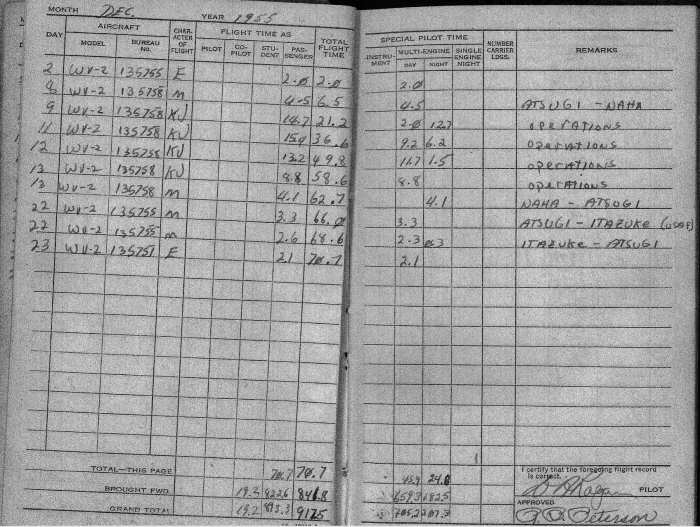 MONTH DEC. YEAR 1955
DAY AIRCRAFT MODEL BUREAU NO. CHARACTER OF FLIGHT FLIGHT TIME AS PILOT CO-PILOT STUDENT PASSENGER TOTAL FLIGHT TIME
SPECIAL PILOT TIME INSTRUMENT MULTI-ENGINE DAY NIGHT SINGLE ENGINE NIGHT NUMBER CARRIER LDGS. REMARKS
2 WV-2 135755 F 2.0 2.0 2.0
8 WV-2 135758 M 4.5 6.5 4.5 ATSUGI - NAHA
9 WV-2 135758 KJ 14.7 21.2 2.0 12.7 OPERATIONS
11 WV-2 135758 KJ 15.4 36.6 9.2 6.2 OPERATIONS
12 WV-2 135758 KJ 13.2 49.8 11.7 1.5 OPERATIONS
13 WV-2 135758 KJ 8.8 58.6 8.8 OPERATIONS
13 WV-2 135758 M 4.1 62.7 4.1 NAHA - ATSUGI
22 WV-2 135755 M 3.3 66.0 3.3 ATSUGI - ITAZUKE (USAF)
22 WV-2 135755 M 2.6 68.6 2.3 0.3 ITAZUKE - ATSUGI
23 WV-2 135757 F 2.1 70.7 2.1
TOTAL—THIS PAGE 70.7 70.7 45.9 24.8
BROUGHT FWD. 841.8
GRAND TOTAL 19.2
I certify that the foregoing flight record is correct.
PILOT
APPROVED
Peterson